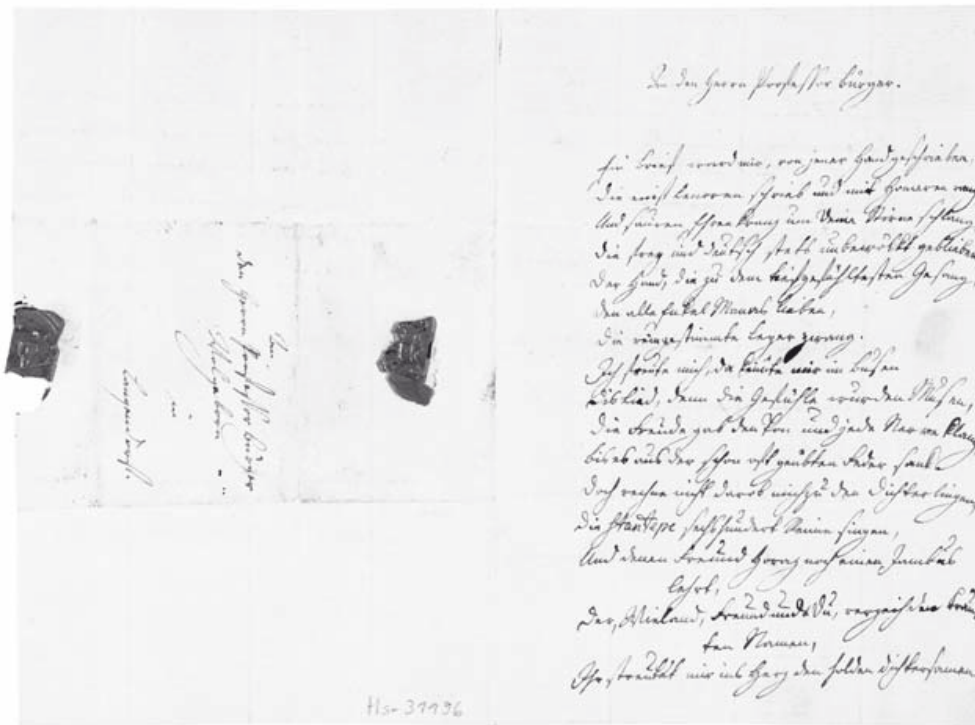 An
den Herrn Professor Bürger
Wolgeborn
in
Langendorf.
An den Herrn Professor Bürger.
Ein Brief ward mir, von jener Hand geschrieben,
Die einst Lenoren schrieb und mit Homeren rang
Und sauren Ehrenkranz um Deine Stirne schlang
Die frey und deutsch stets unbewölkt geblieben
Der Hand, die zu dem tiefgefühltesten Gesang
Den alle Enkel Manas lieben,
Die reingestimmte Leyer zwang.
Ich freute mich, da keimte mir im Busen
Dis Lied, denn die Gefühle wurden Musen,
Die Freude gab den Ton und jede Nerve klang
bis es aus der schon oft geübten Feder sank.
Doch rechne nicht darob mich zu den Dichterlingen,
Die stans pede sechshundert Reime singen,
Und denen Freund Horaz noch einen Jambus
lehrt,
Der, Wieland, Freund und Du, verzeih den trau
ten Namen,
Ihr streutet mir ins Herz den holden Dichtersamen
Hs-31196